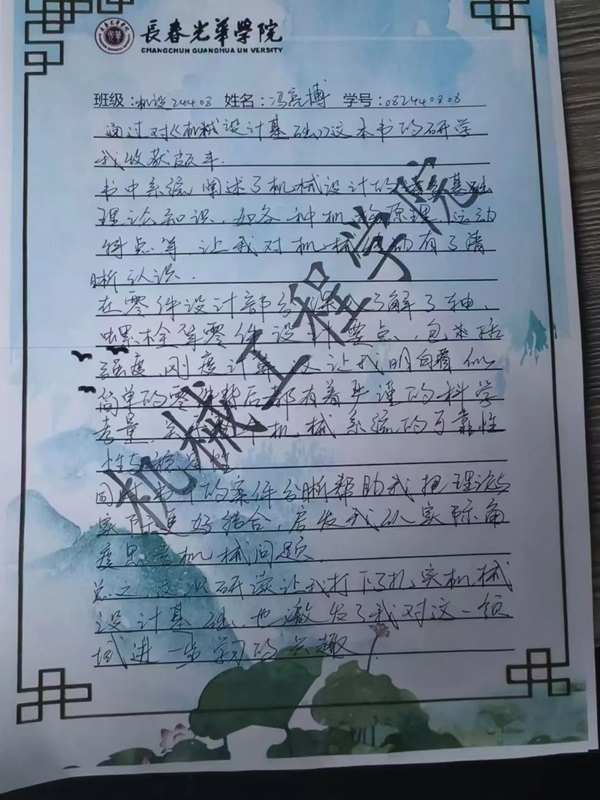 長春光華學院
CHANGCHUN GUANGHUA UNIVERSITY
班级:机设24408 姓名:冯亮博 学号:082440808
通过对《机械设计基础》这本书的研学
我收获颇丰.
书中系统阐述了机械设计的基础
理论知识,如各种机构原理、运动
特点等,让我对机械有了清
晰认识.
在零件设计部分,了解了轴、
螺栓等零件设计要点,包括
强度、刚度计算,让我明白看似
简单的零件背后都有着严谨的科学
考量,机械系统的可靠性
同时书中的案件分晰帮助我把理论与
实际更好结合,启发我从实际角
度思考机械问题.
总之,这次研读让我打下了扎实机械
设计基础,也激发了我对这一领
域进一步学习的兴趣.
机械工程学院